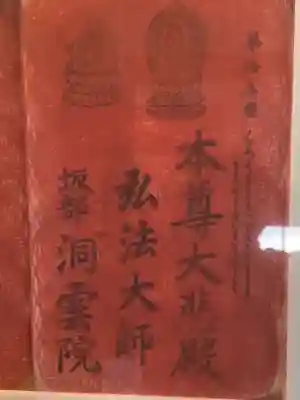 本尊大悲殿
弘法大師
坂部 洞雲院